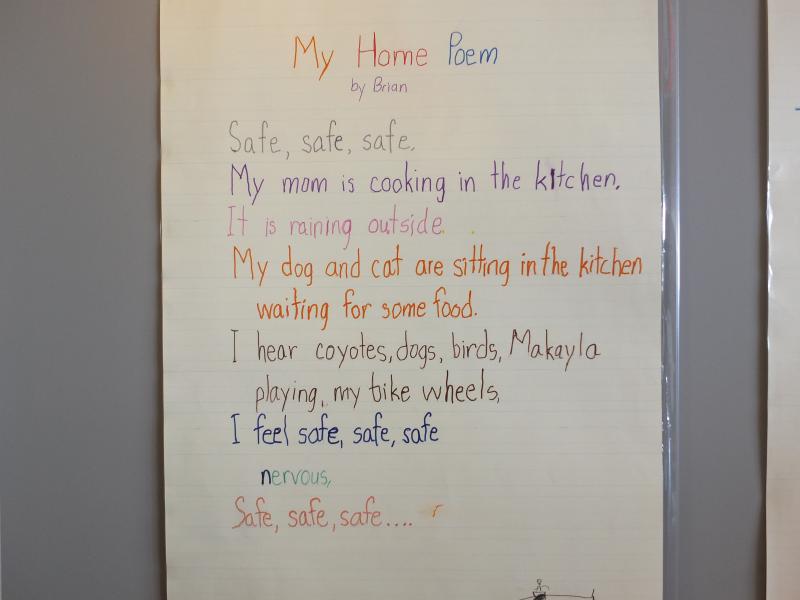 My Home Poem
by Brian
Safe, safe, safe.
My mom is cooking in the kitchen.
It is raining outside.
My dog and cat are sitting in the kitchen
waiting for some food.
I hear coyotes, dogs, birds, Makayla
playing, my bike wheels,
I feel safe, safe, safe
nervous,
Safe, safe, safe....